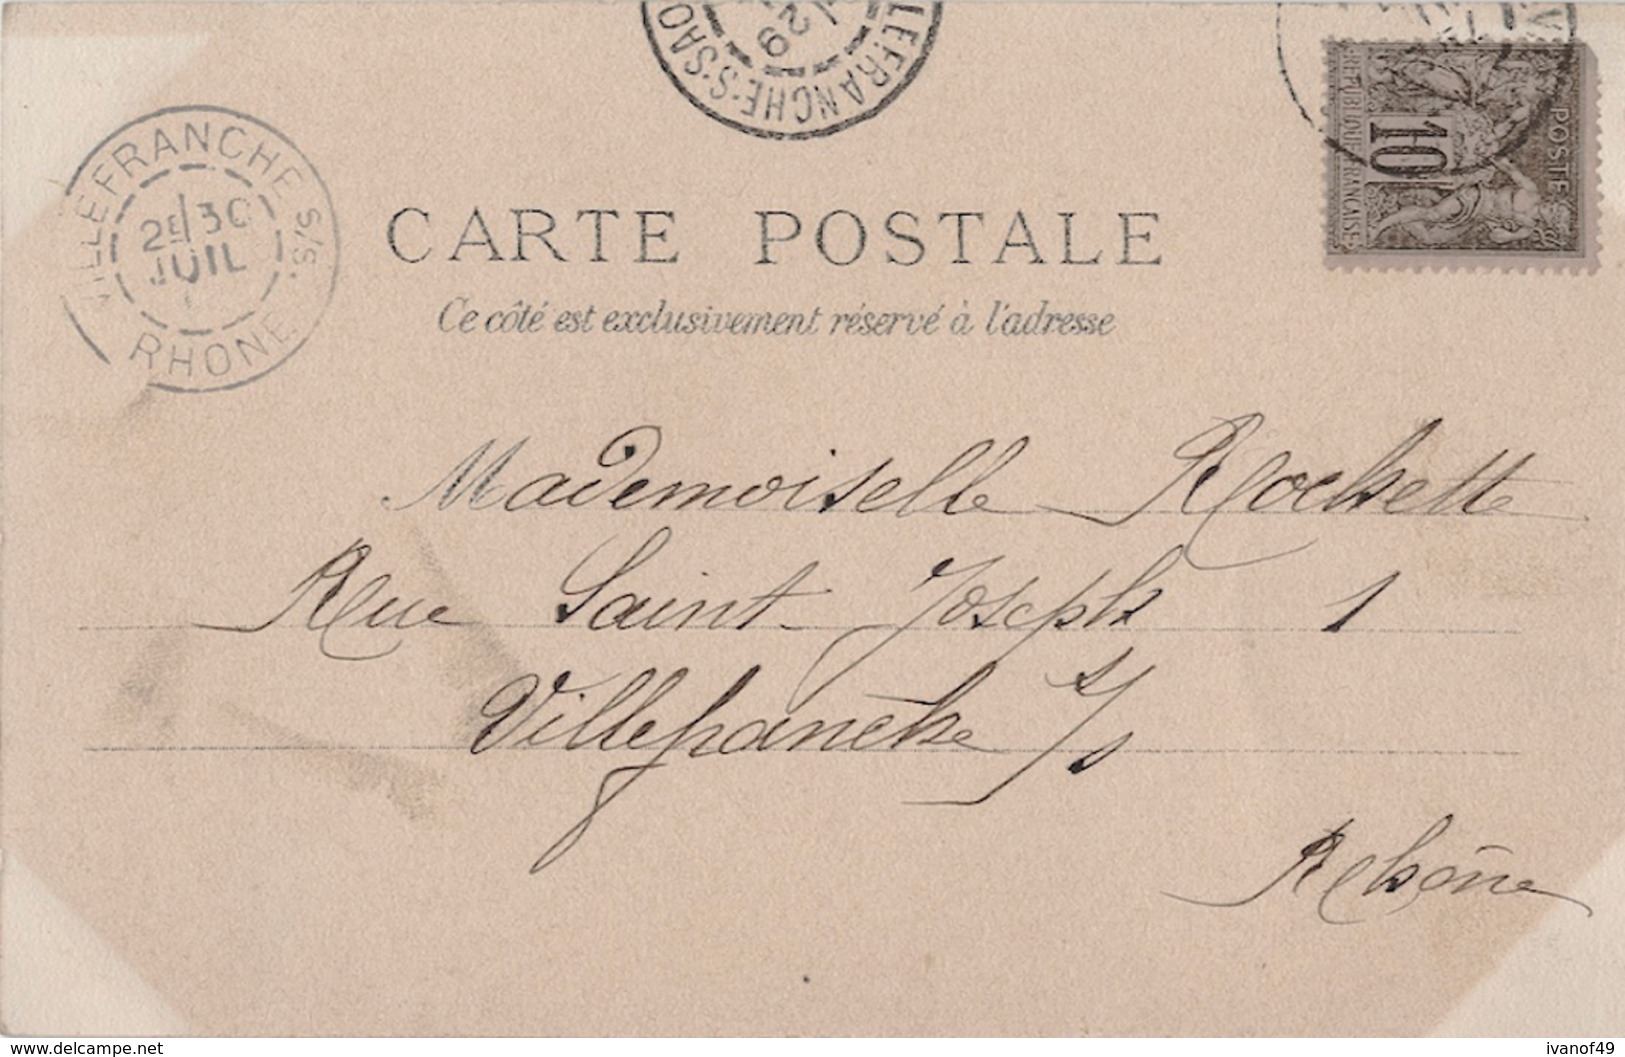 VILLEFRANCHE S/S.
2E/30
JUIL
RHONE
LEFRANCHE-S-SAO
29
REPUBLIQUE FRANCAISE
10
POSTE
CARTE POSTALE
Ce côté est exclusivement réservé à l'adresse
Mademoiselle Rochette
Rue Saint-Joseph 1
Villefranche s/s
Rhône
www.delcampe.net
ivanof49